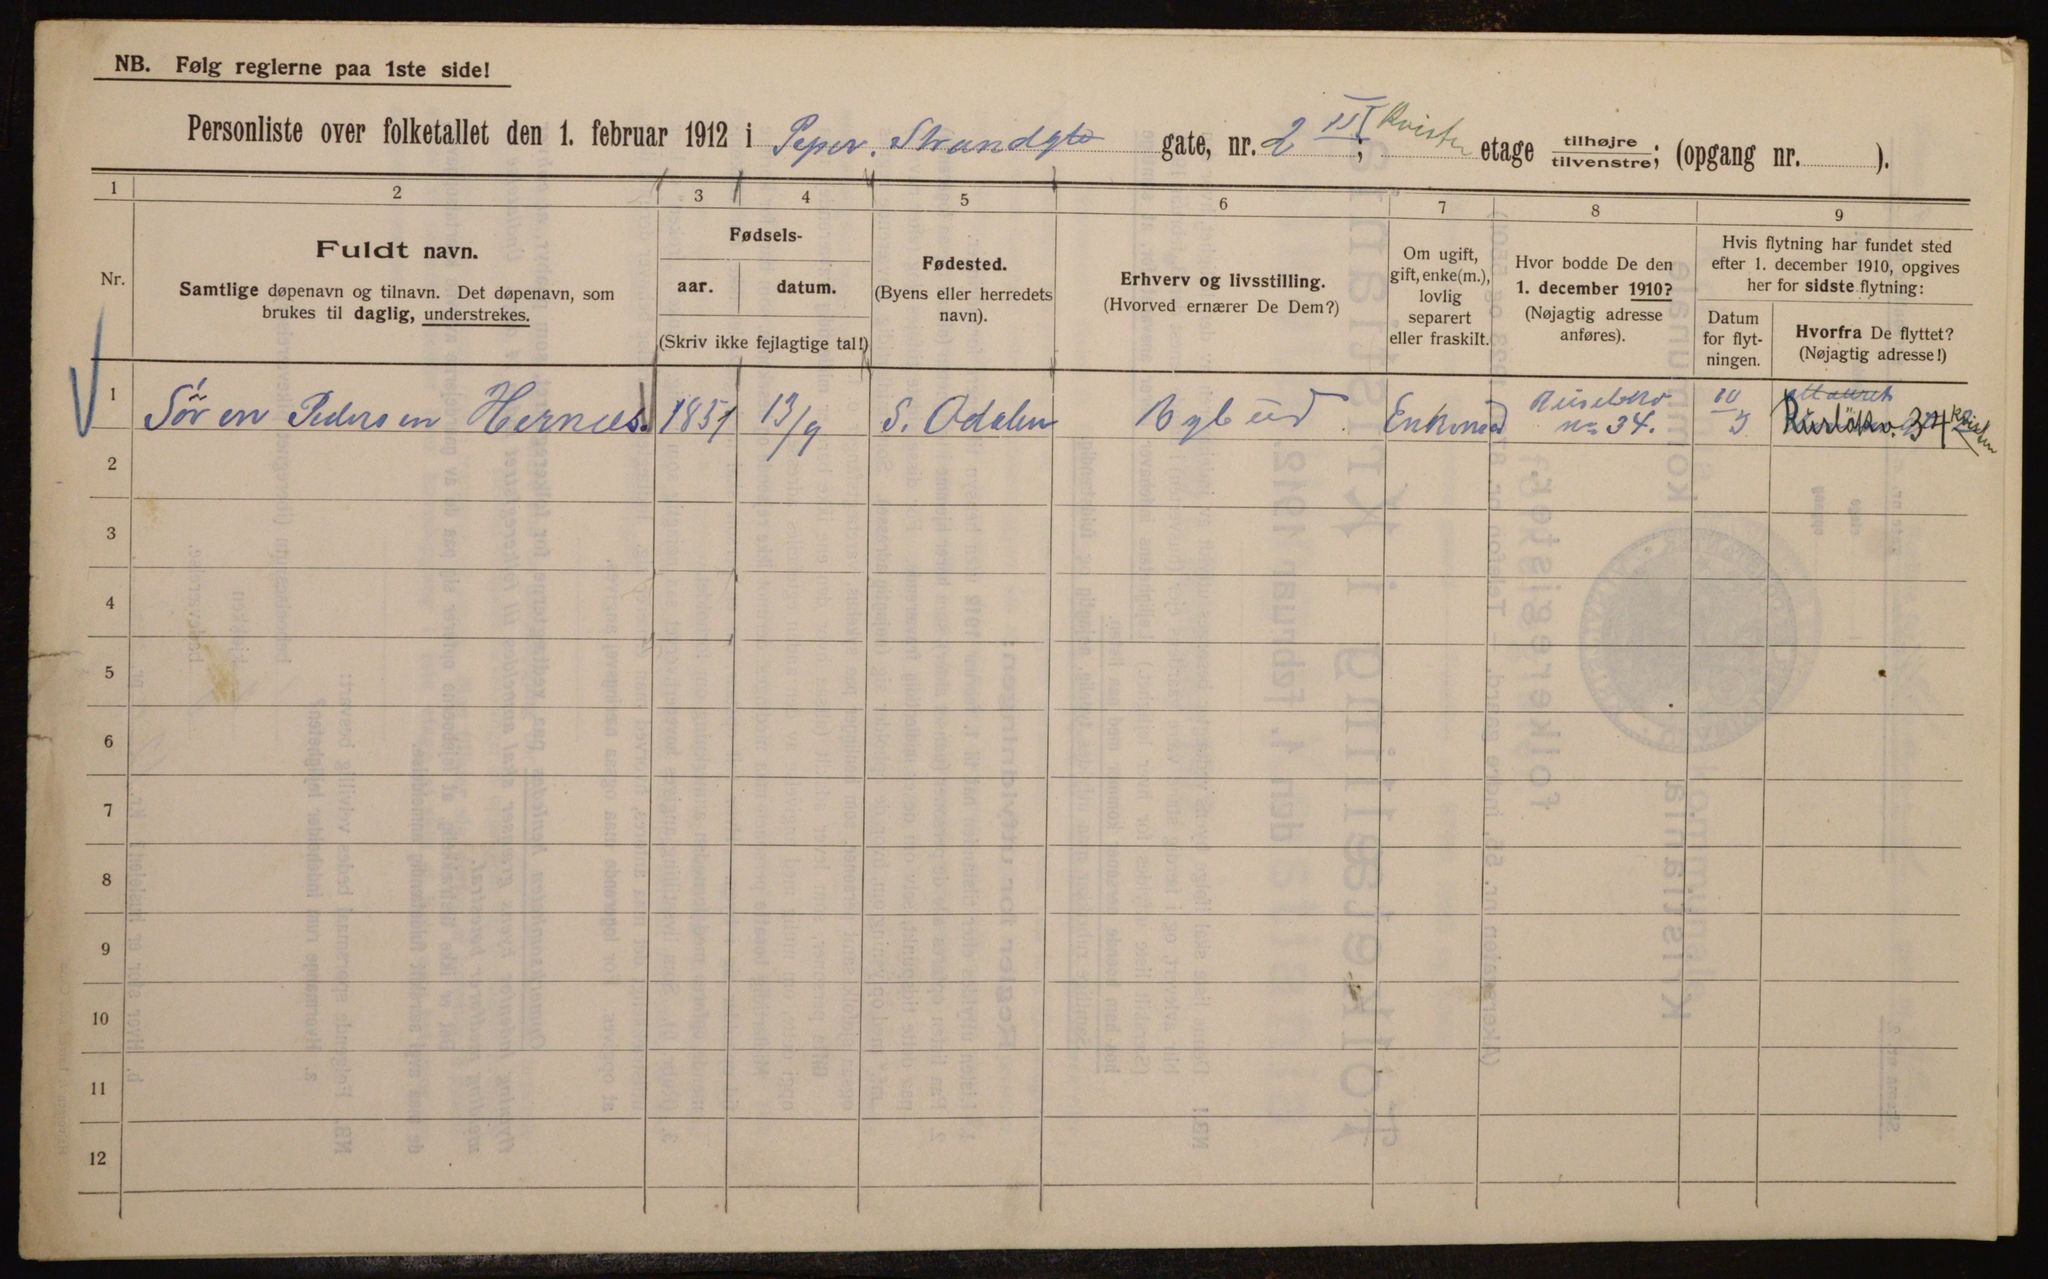 NB. Følg reglerne paa 1ste side!
Personliste over folketallet den 1. februar 1912 i Peper. Strandgte gate, nr. 2 III; Kvisten etage tilhøjre/tilvenstre; (opgang nr. ).
1 2 3 4 5 6 7 8 9
Nr.
Fuldt navn.
Samtlige døpenavn og tilnavn. Det døpenavn, som
brukes til daglig, understrekes.
Fødsels-
aar. datum.
(Skriv ikke fejlagtige tal!)
Fødested.
(Byens eller herredets
navn).
Erhverv og livsstilling.
(Hvorved ernærer De Dem?)
Om ugift,
gift, enke(m.),
lovlig
separert
eller fraskilt.
Hvor bodde De den
1. december 1910?
(Nøjagtig adresse
anføres).
Hvis flytning har fundet sted
efter 1. december 1910, opgives
her for sidste flytning:
Datum
for flyt-
ningen.
Hvorfra De flyttet?
(Nøjagtig adresse!)
1 Søren Pedersen Hernæs. 1851 13/9 S. Odalen Bylud Enkemand
no 34.
10/3
34 Kvisten
2
3
4
5
6
7
8
9
10
11
12